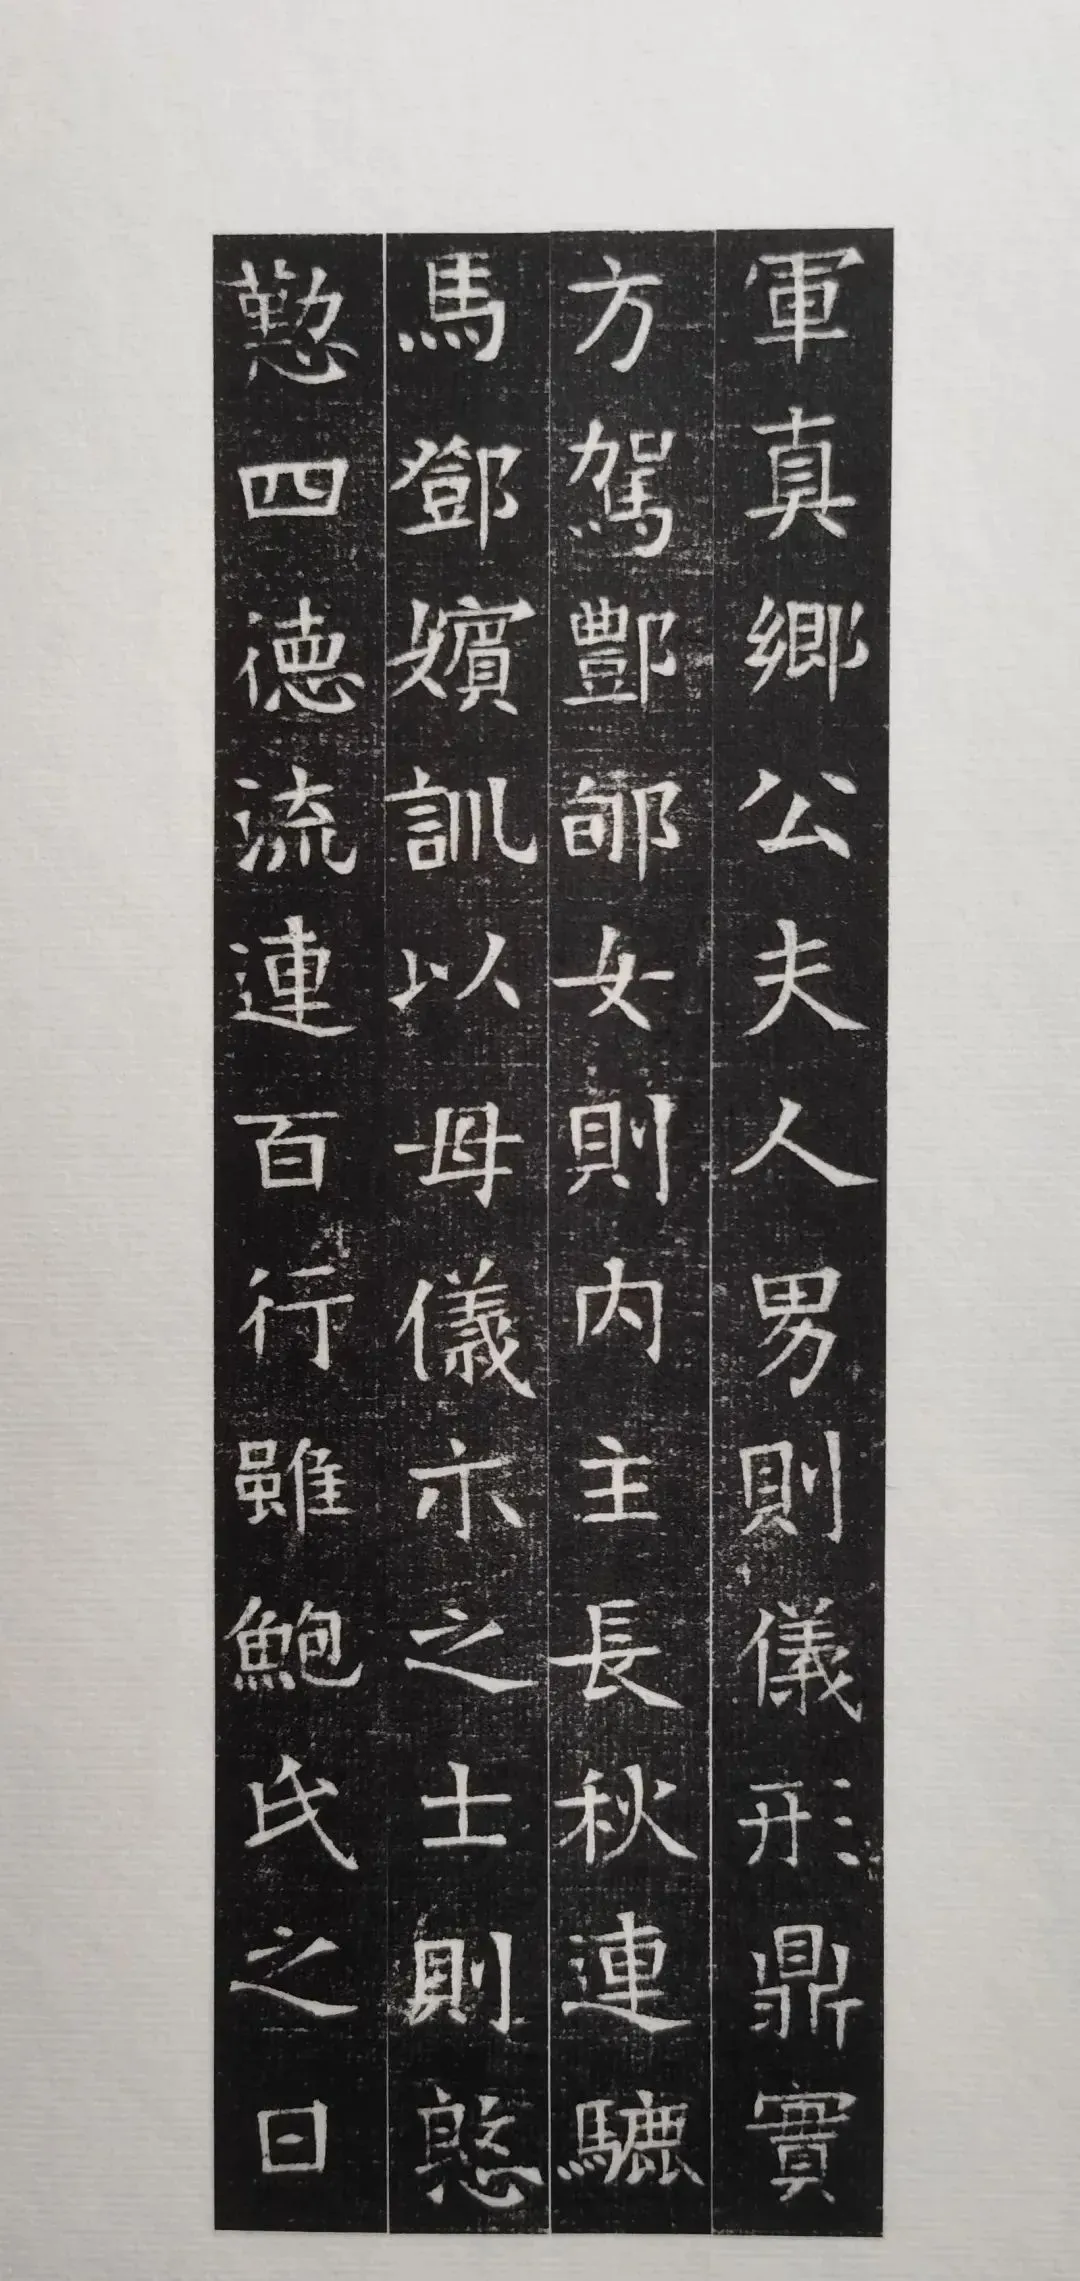 軍真鄉公夫人男則儀形鼎實
方駕酆郇女則内主長秋連
馬鄧嬪訓以母儀示之士則慇
懃四德流連百行雖鮑氏之曰